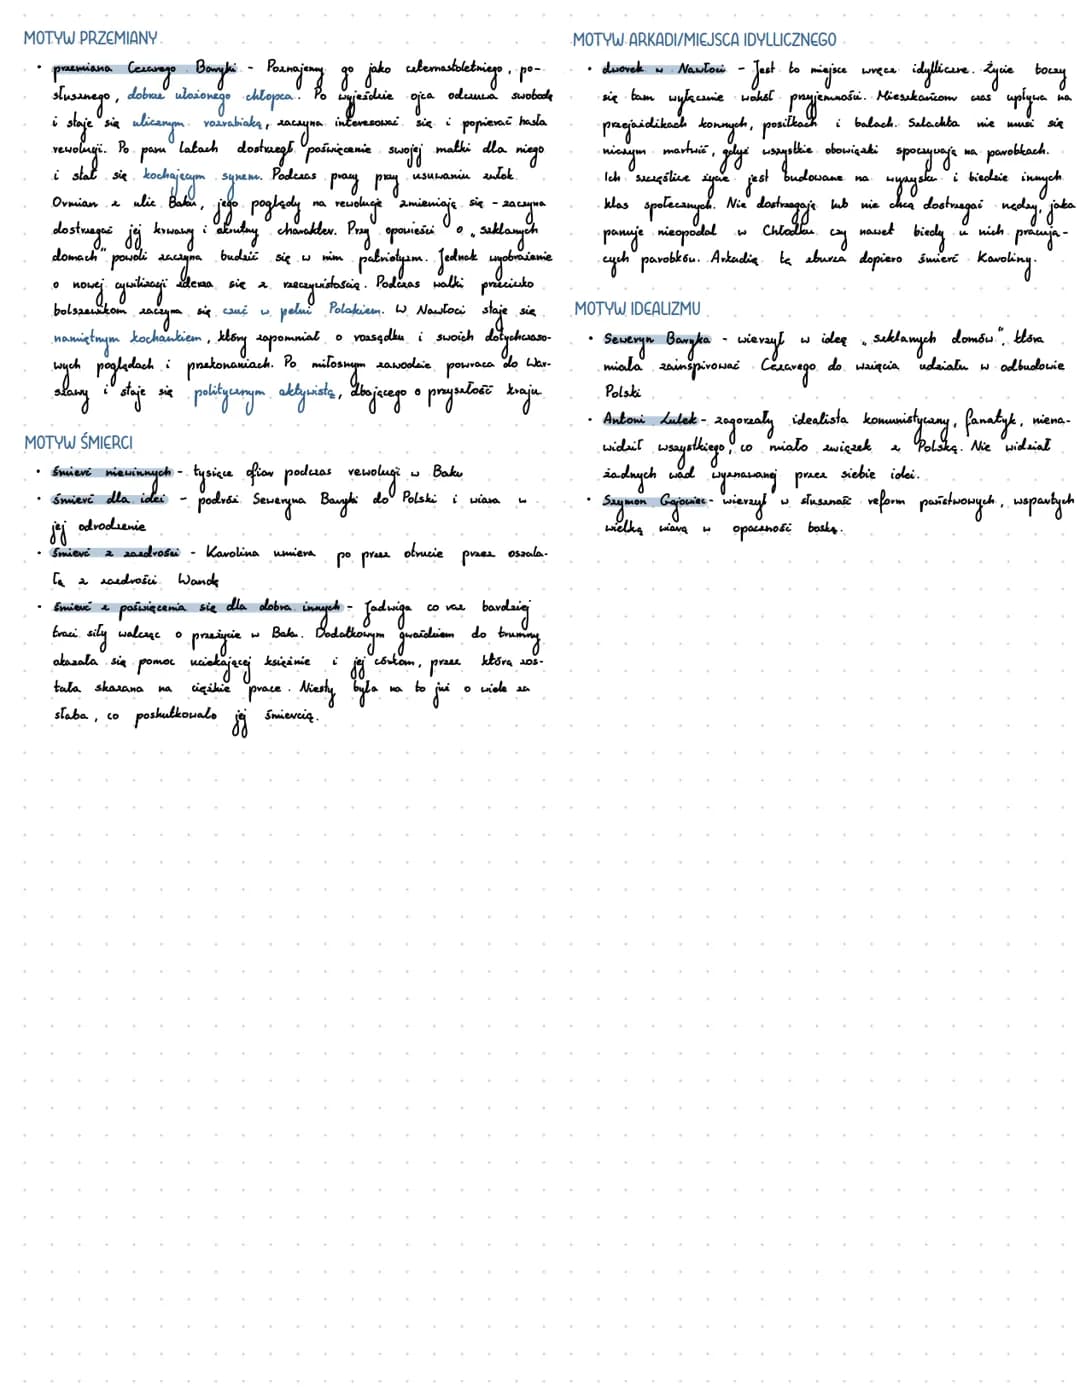 MOTYW PRZEMIANY
• przemiana Cezarego Baryki - Poznajemy go jako czternastoletniego, po-
słusznego, dobrze ułożonego chłopca. Po wyjeździe ojca odczuwa swobodę
i staje się ulicznym rozrabiaką, zaczyna interesować się i popierać hasła
rewolucji. Po paru latach dostrzegł poświęcenie swojej matki dla niego
i stał się kochającym synem. Podczas pracy przy usuwaniu zwłok
Ormian z ulic Baku, jego poglądy na rewolucję zmieniają się - zaczyna
dostrzegać jej krwawy i okrutny charakter. Przy opowieści o „szklanych
domach" powoli zaczyna budzić się w nim patriotyzm. Jednak wyobrażenie
o nowej cywilizacji zderza się z rzeczywistością. Podczas walki przeciwko
bolszewikom zaczyna się czuć w pełni Polakiem. W Nawłoci staje się
namiętnym kochankiem, który zapomniał o rozsądku i swoich dotychczaso-
wych poglądach i przekonaniach. Po miłosnym zawodzie powraca do War-
szawy i staje się politycznym aktywistą, dbającego o przyszłość kraju.
MOTYW ŚMIERCI
• śmierć niewinnych - tysiące ofiar podczas rewolucji w Baku
• śmierć dla idei - podróż Seweryna Baryki do Polski i wiara w
jej odrodzenie
• śmierć z zazdrości - Karolina umiera po przez otrucie przez oszala-
łą z zazdrości Wandę
• śmierć z poświęcenia się dla dobra innych - Jadwiga co raz bardziej
traci siły walcząc o przeżycie w Baku. Dodatkowym gwoździem do trumny
okazała się pomoc uciekającej księżnie i jej córkom, przez którą zos-
tała skazana na ciężkie prace. Niesty była na to już o wiele za
słaba, co poskutkowało jej śmiercią.
MOTYW ARKADI/MIEJSCA IDYLLICZNEGO
• dworek w Nawłoci - Jest to miejsce wręcz idylliczne. Życie toczy
się tam wyłącznie wokół przyjemności. Mieszkańcom czas upływa na
przejażdżkach konnych, posiłkach i balach. Szlachta nie musi się
niczym martwić, gdyż wszystkie obowiązki spoczywają na parobkach.
Ich szczęśliwe życie jest budowane na wyzysku i biedzie innych
klas społecznych. Nie dostrzegają lub nie chcą dostrzegać nędzy, jaka
panuje nieopodal w Chłodku czy nawet biedy u nich pracują-
cych parobków. Arkadię tę zburza dopiero śmierć Karoliny.
MOTYW IDEALIZMU
• Seweryn Baryka - wierzył w ideę „szklanych domów", która
miała zainspirować Cezarego do wzięcia udziału w odbudowie
Polski
• Antoni Lulek - zagorzały idealista komunistyczny, fanatyk, niena-
widził wszystkiego, co miało związek z Polską. Nie widział
żadnych wad wyznawanej przez siebie idei.
• Szymon Gajowiec - wierzył w słuszność reform państwowych, wspartych
wielką wiarą w opaczność boską.